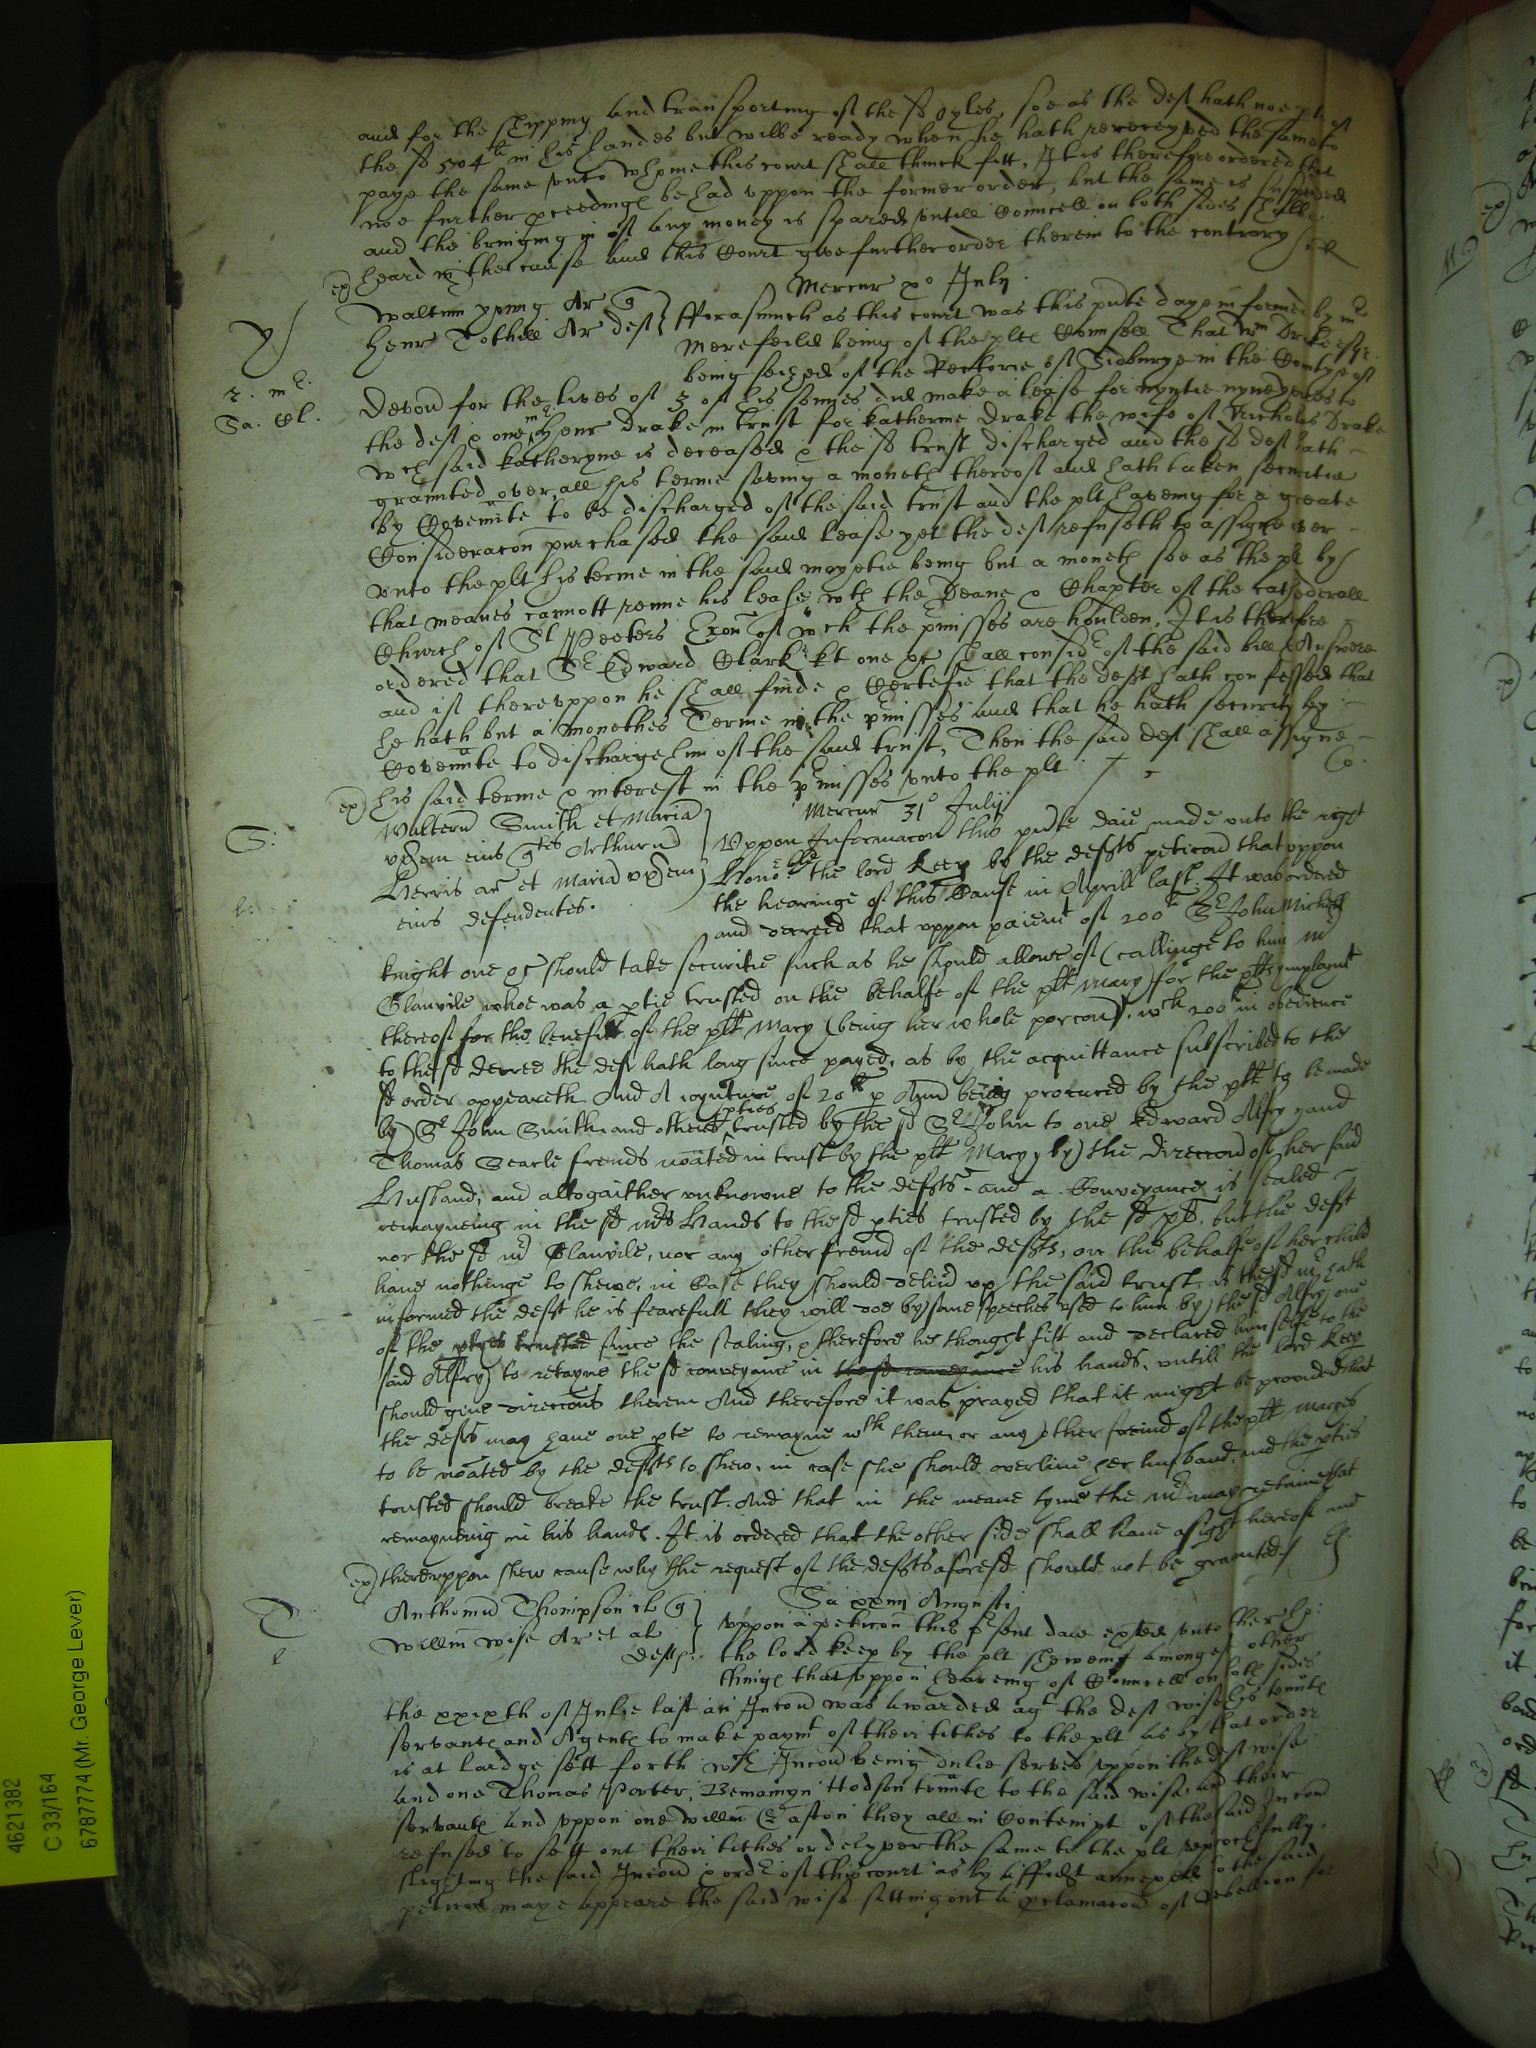 and for the shipping and transporting of the sd oyles, soe as the deft hath noe pte of
the sd 504li in his handes but wilbe ready when he hath receyved the same to
paye the same unto whome this court shall thinck fitt, It is therefore ordered that
noe further pceedinge be had uppon the former order, but the same is suspended
and the bringing in of any money is spared untill Councell on both sides shalbe
heard in the cause and this Court give further order therein to the contrary
ex
Mercur xo July
Y
Walterum yong Ar q
Henr Tothill Ar deft
fforasmuch as this court was this pnte daye informed by mr
Merefeild being of the pltes Counsell That Wm Drake esqr
being seized of the Rectorie of Sidburye in the Countye of
r. mr.
Sa. Cl.
Devon for the lives of 3 of his sonnes did make a lease for nyntie nyne yeres to
the deft & one mr Henr Drake in trust for Katherine Drake the wife of Nicholas Drake
wch said Katheryne is deceased & the sd trust discharged and the sd deft hath
graunted over all his terme saving a moneth thereof and hath taken securitie
by Covennte to be discharged of the said trust and the plt haveing for a greate
Consideracon purchased the said lease yet the deft refuseth to assigne over
unto the plt his terme in the said moyetie being but a moneth soe as the plt by
that meanes cannott renue his lease wth the Deane & Chapter of the cathederall
Church of St Peeters Exon of wch the pmisses are houlden, It is therefore
ordered that Sr Edward Clark kt one &c shall consider of the said bill & Answere
and if thereuppon he shall finde & Certefie that the deft hath confessed that
he hath but a monethes Terme in the pmisses and that he hath security by
Covennte to discharge him of the said trust, Then the said deft shall assigne
his said terme & interest in the pmisses unto the plt
Co.
ex
Mercur 31o Julij
S:
Walterum Smith et Maria
uxem eius qtes Arthurum
Herris ar et Maria uxem
eius defendentes.
Uppon Informacon this pnte daie made unto the right
Honoble the lord Keep by the defts peticon that uppon
the hearinge of this Cause in Aprill last It was ordered
and decreed that uppon paiemt of 200li Sr John Michell
knight one &c should take securitie such as he should allowe of (callinge to him mr
Glanvile whoe was a ptie trusted on the behalfe of the plt Mary) for the plts imploymt
thereof for the benefit of the plt Mary (being her whole porcon), wch 200li in obedience
to the sd decree the deft hath long since payed, as by the acquittance subscribed to the
sd order appeareth. And A ioynture of 20li p Ann being procured by the plt to be made
by Sr John Smith and other pties trusted by the sd Sr John to one Edward Alfry and
Thomas Searle frends noated in trust by the plt Mary, by the direccon of her said
Husband, and altogaither unknowne to the defts, and a Conveyance is sealed
remayneing in the sd mrs Hands to the sd pties trusted by the sd plt. but the deft
nor the sd mr Glanvile, nor any other freind of the defts, on the behalfe of her child
have nothinge to shewe, in Case they should delivr up the said trust, as the sd mr hath
informed the deft he is fearefull they will doe by some speeches used to him by the sd Alfry one
of the pties trusted since the sealing, & therefore he thought fitt and declared himselfe to the
said Alfry to retayne the sd conveyance in the sd conveyance his hands, untill the lord Keep
should give direccons therein And therefore it was prayed that it might be provided that
the defts may have one pte to remayne wth them, or any other freind of the plt Maries
to be noated by the defts to shew, in case she should overlive her husband, and the pties
trusted should breake the trust. And that in the meane tyme the mr may retaine that
remayneing in his handes. It is ordered that the other side shall have a sight hereof and
ex
thereuppon shew cause why the request of the defts aforesd should not be graunted
T
Anthonium Thompson cl q
Willm Wise Ar et al
defts
Sa Augusti
Uppon a peticon this psent daie exhted unto the
the lord keep by the plt sheweing amongest other
things that uppon heareing of Councell on both sides
the xxixth of Julie last an Inconn was awarded agt the deft Wise his tennts
servants and Agents to make paymt of their tithes to the plt as by that order
is at lardge sett forth wch Inconn being dulie served uppon the deft Wise
and one Thomas Porter, Beniamyn Hodson tennts to the said Wise and their
servants and uppon one Willm Easton they all in Contempt of the said Inconn
refused to sett out their tithes or delyver the same to the plt reprochfully
slighting the said Inconn & order of this court as by affidt annexed to the said
peticon maye appeare the said Wise sitting out a pclamacon of Rebellion for
4621382
C 33/164
6787774 (Mr. George Lever)